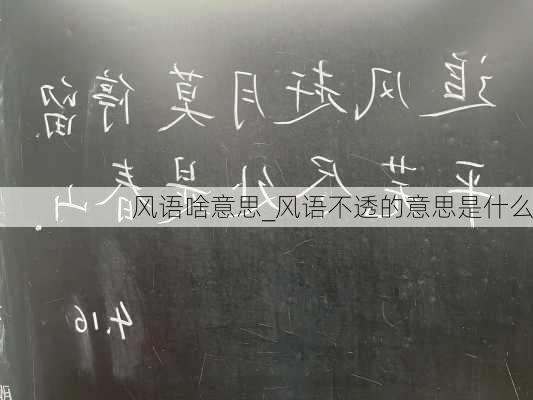 追风赶月莫停留
平芜尽处是春山
风语啥意思_风语不透的意思是什么
4.16